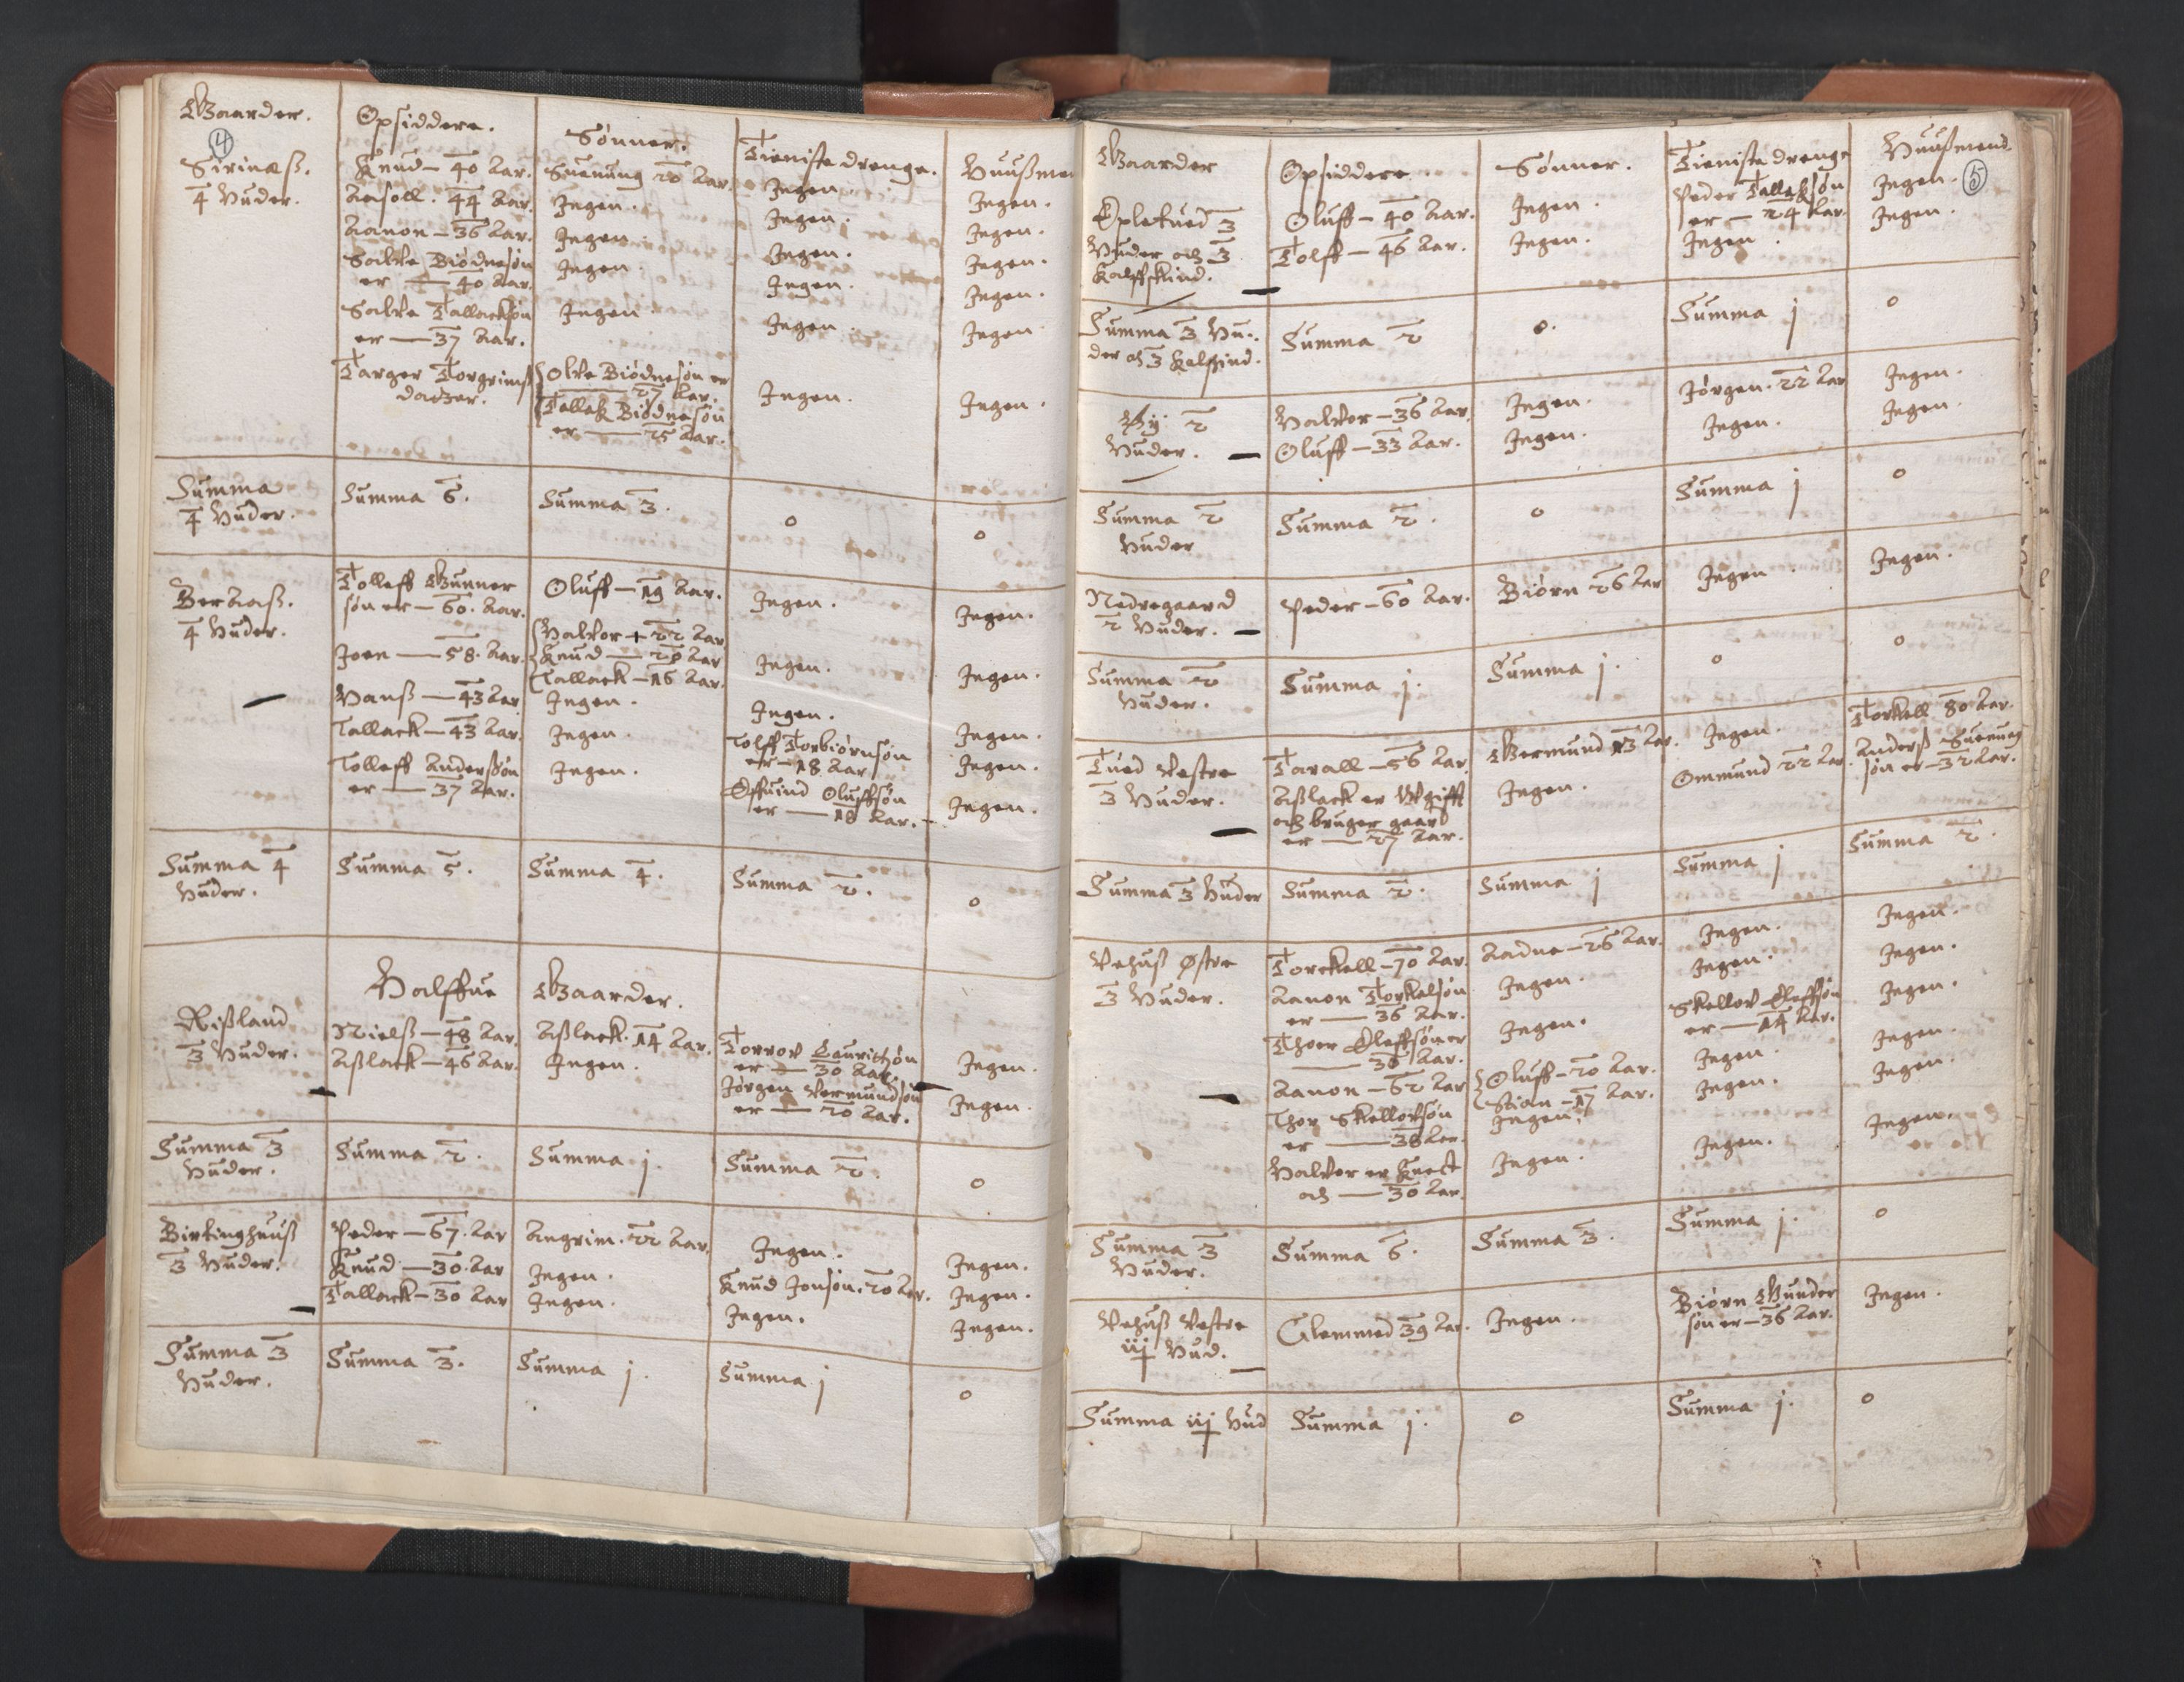 Gaarder.
4
Sirinæß.
4 Huder.
Opsiddere.
Knud – 40 Aar.
Aasoll. 44 Aar.
Aanon – 36 Aar.
Salve Biødnesøn
er — 40 Aar.
Salve Tallacksøn
er — 37 Aar.
Targer Torgrims
datzer.
Sønner.
Suenung 20 Aar.
Ingen.
Ingen.
Ingen.
Ingen
Olve Biødnesøn er
— 27 Aar.
Tallek Biødnesøn
er — 25 Aar.
Tienistedrenge.
Ingen.
Ingen.
Ingen.
Ingen.
Ingen.
Ingen.
Huußmen
Ingen.
Ingen.
Ingen.
Ingen.
Ingen.
Ingen.
Summa
4 Huder.
Summa 6.
Summa 3.
0
0
Beraaß.
4 Huder.
Tolleff Gunner
søn er – 60. Aar.
Joen — 58. Aar.
Hanß — 43 Aar
Tallack – 43 Aar.
Tolleff Anderßøn
er — 37 Aar.
Oluff – 19 Aar.
Halvor + 22 Aar
Knud — 20 Aar
Tallack – 16 Aar.
Ingen.
Ingen.
Ingen.
Ingen.
Ingen.
Ingen.
Tolff Torbiørnsøn
er – 18 Aar
Øffuind Oluffsøn
er — 18 Aar.
Ingen.
Ingen.
Ingen.
Ingen.
Ingen.
Summa 4
Huder.
Summa 5.
Summa 4.
Summa 2.
0
Halffue Gaarder.
Rißland
3 Huder.
Nielß – 48 Aar.
Aßlack – 46 Aar.
Aßlack. 14 Aar.
Ingen.
Torrov Lauritzøn
er — 30 Aar
Jørgen Vermundsøn
er — 20 Aar.
Ingen.
Ingen.
Summa 3
Huder.
Summa 2.
Summa j.
Summa 2.
0
Birkinghuuß
3 Huder.
Peder – 67. Aar
Knud — 30. Aar
Tallack – 30 Aar
Angrim. 22 Aar.
Ingen.
Ingen.
Ingen.
Knud Jonsøn. 20 Aar.
Ingen.
Ingen.
Ingen.
Ingen.
Summa 3
Huder.
Summa 3.
Summa j.
Summa j
0
Gaarder
Epletued 3
Huder och 3
Kalffskind.
Opsiddere
Oluff – 40 Aar.
Tolff – 46 Aar.
Sønner.
Ingen.
Ingen.
Tienistedrenge
Peder Tallaksøn
er – 24 Aar.
Ingen.
Huußmend.
5
Ingen.
Ingen.
Summa 3 Hu-
der och 3 Kalfskind.
Summa 2
0.
Summa j
0
By 2
Huder.
Halvor – 36 Aar.
Oluff – 33 Aar.
Ingen.
Ingen.
Jørgen. 22 Aar
Ingen.
Ingen.
Ingen.
Summa 2
Huder
Summa 2.
0
Summa j
0
Nedregaard
2 Huder.
Peder – 60 Aar.
Biørn 26 Aar
Ingen.
Ingen.
Summa 2
Huder.
Summa j.
Summa j.
0
0
Tued Vestre
3 Huder.
Tarall – 56 Aar.
Aßlack er Vgifft
och bruger gaard
er — 27 Aar.
Germund 13 Aar.
Ingen.
Ingen.
Ommund 22 Aar.
Torkell 80 Aar.
Anderß Suenung
søn er – 32 Aar.
Summa 3 Huder
Summa 2.
Summa j
Summa j
Summa 2.
Vehuß Østre
3 Huder.
Torckell – 70 Aar.
Aanon Torkelsøn
er — 36 Aar.
Thoer Oleffsøn er
— 36 Aar.
Aanon – 62 Aar
Thor Skellovsøn
er — 38 Aar.
Halvor er Knect
och — 30 Aar.
Aadne – 26 Aar.
Ingen.
Ingen.
Oluff – 20 Aar.
Stian – 17 Aar.
Ingen.
Ingen.
Ingen.
Ingen.
Skellov Oleffsøn
er — 14 Aar.
Ingen.
Ingen.
Ingen.
Ingen.
Ingen.
Ingen.
Ingen.
Ingen.
Ingen.
Summa 3
Huder.
Summa 6.
Summa 3.
Summa j.
0
Vehuß Vestre
iij Hud.
Clemmed 39 Aar.
Ingen.
Biørn Gunder
søn er – 36 Aar.
Ingen.
Summa iij Hud
Summa j.
0
Summa j.
0